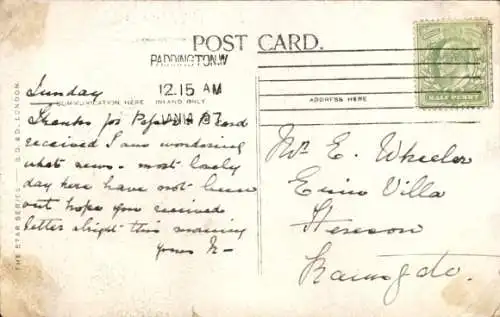 POST CARD.
PADDINGTON. W
12.15 AM
JAN 14 07
COMMUNICATION HERE INLAND ONLY
ADDRESS HERE
HALF PENNY
THE STAR SERIES
G. D. & D., LONDON.
Sunday
Thanks for & Card
received I am wondering
what news - most lovely
day here have not been
out hope you received
letter alright this morning
Yours
Mr E. Wheeler
Villa
Ramsgate.